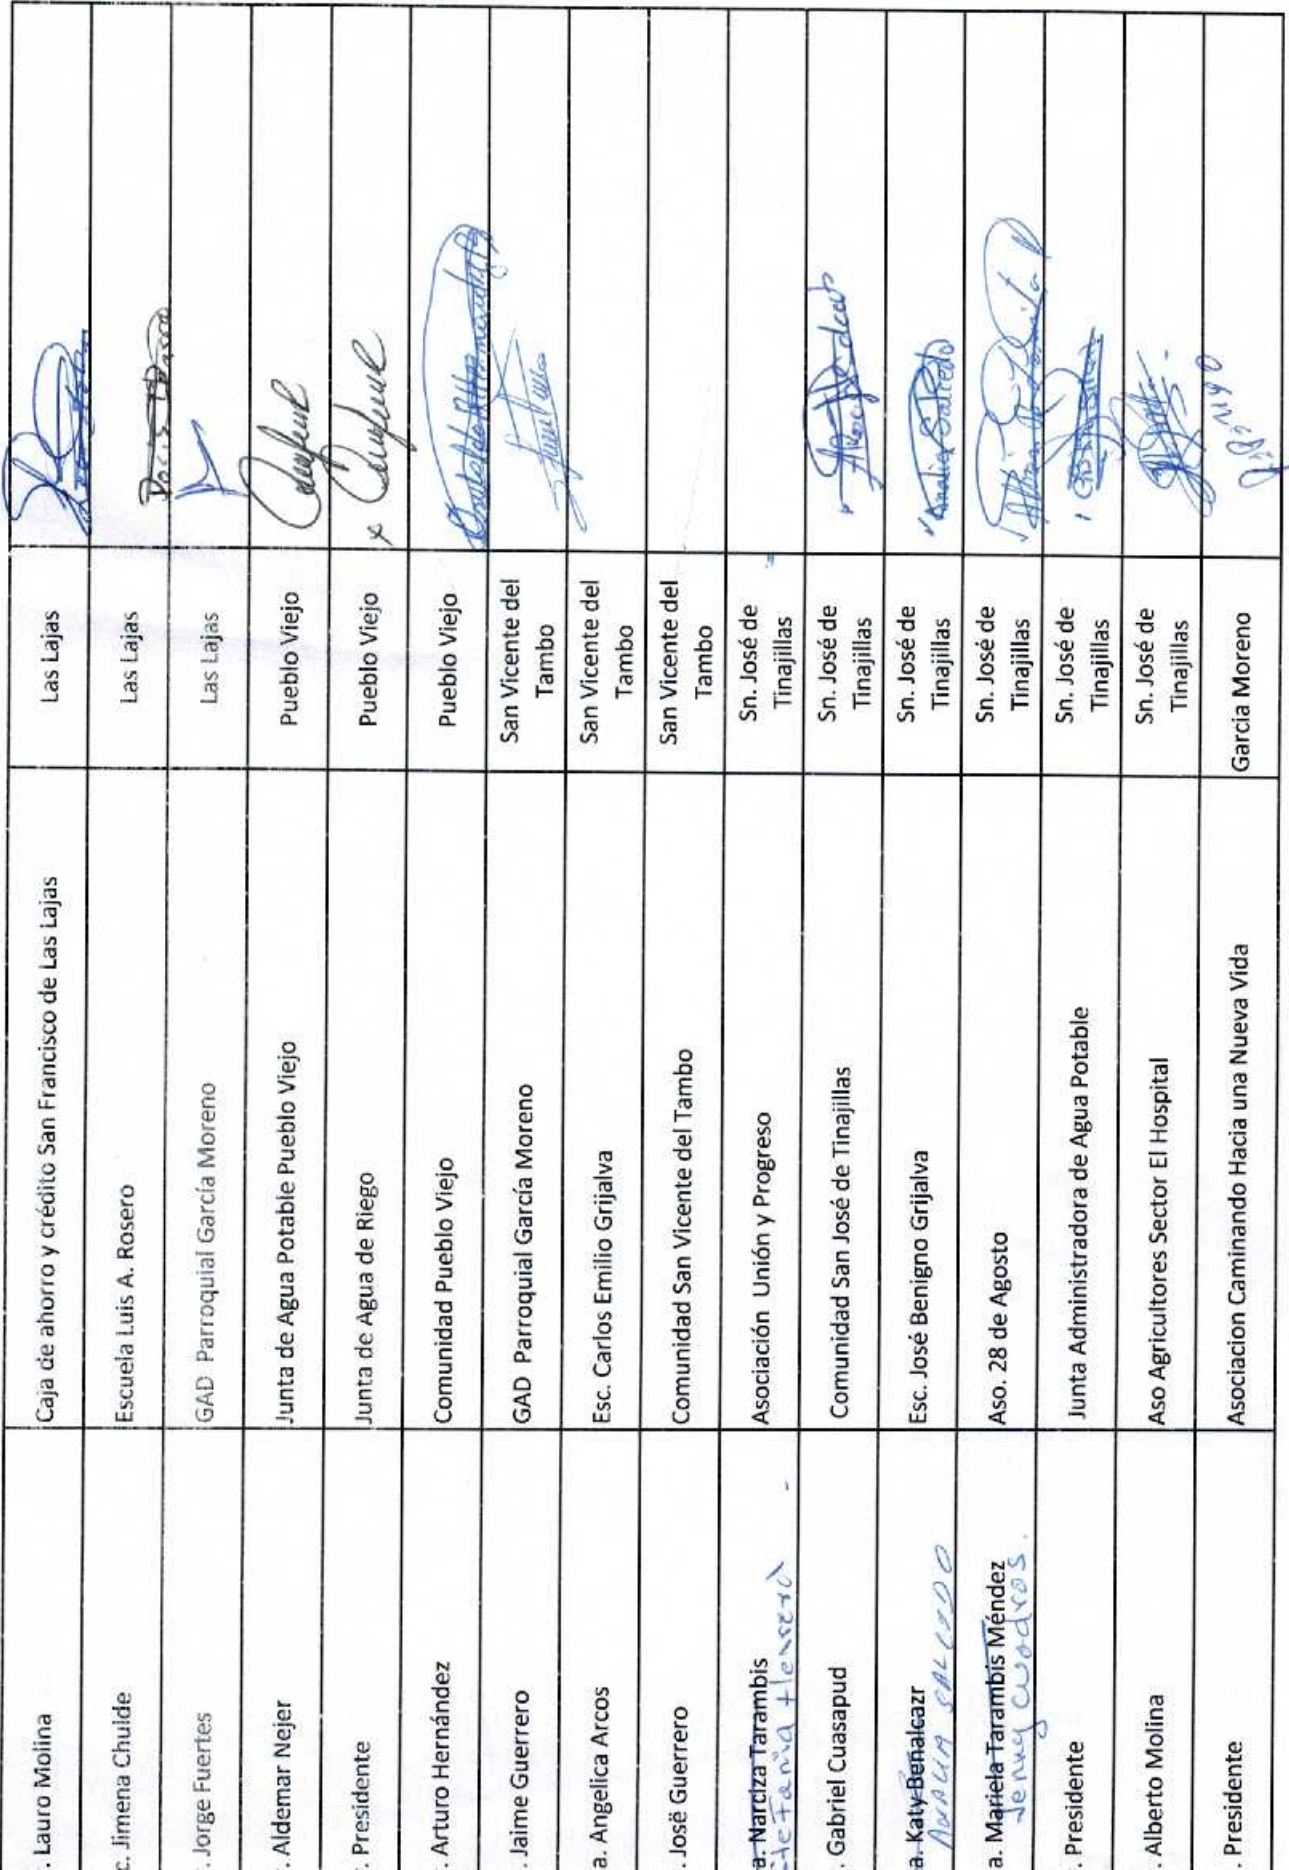 . Lauro Molina Caja de ahorro y crédito San Francisco de Las Lajas Las Lajas
c. Jimena Chulde Escuela Luis A. Rosero Las Lajas
. Jorge Fuertes GAD Parroquial García Moreno Las Lajas
. Aldemar Nejer Junta de Agua Potable Pueblo Viejo Pueblo Viejo
. Presidente Junta de Agua de Riego Pueblo Viejo x
. Arturo Hernández Comunidad Pueblo Viejo Pueblo Viejo
. Jaime Guerrero GAD Parroquial García Moreno San Vicente del
Tambo
a. Angelica Arcos Esc. Carlos Emilio Grijalva San Vicente del
Tambo
. José Guerrero Comunidad San Vicente del Tambo San Vicente del
Tambo
a. Narciza Tarambis Asociación Unión y Progreso Sn. José de
Tinajillas
. Gabriel Cuasapud Comunidad San José de Tinajillas Sn. José de
Tinajillas
a. Katy Benalcazr Esc. José Benigno Grijalva Sn. José de
ANALIA SALCEDO Tinajillas Analia Salcedo
a. Mariela Tarambis Méndez Aso. 28 de Agosto Sn. José de
Jenny Cuadros. Tinajillas
. Presidente Junta Administradora de Agua Potable Sn. José de
Tinajillas
. Alberto Molina Aso Agricultores Sector El Hospital Sn. José de
Tinajillas
. Presidente Asociacion Caminando Hacia una Nueva Vida Garcia Moreno